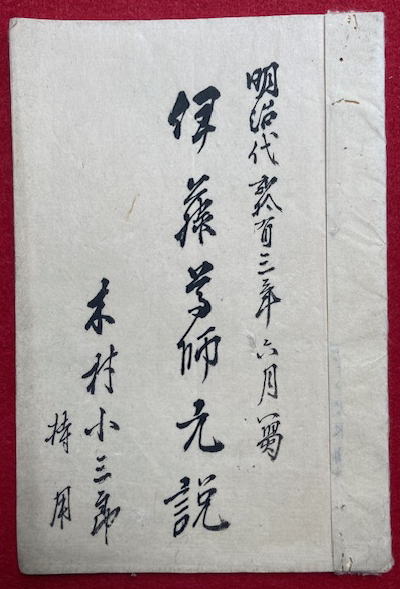 明治代三年六月寫
伊藤師元説
木村小三郎
持用